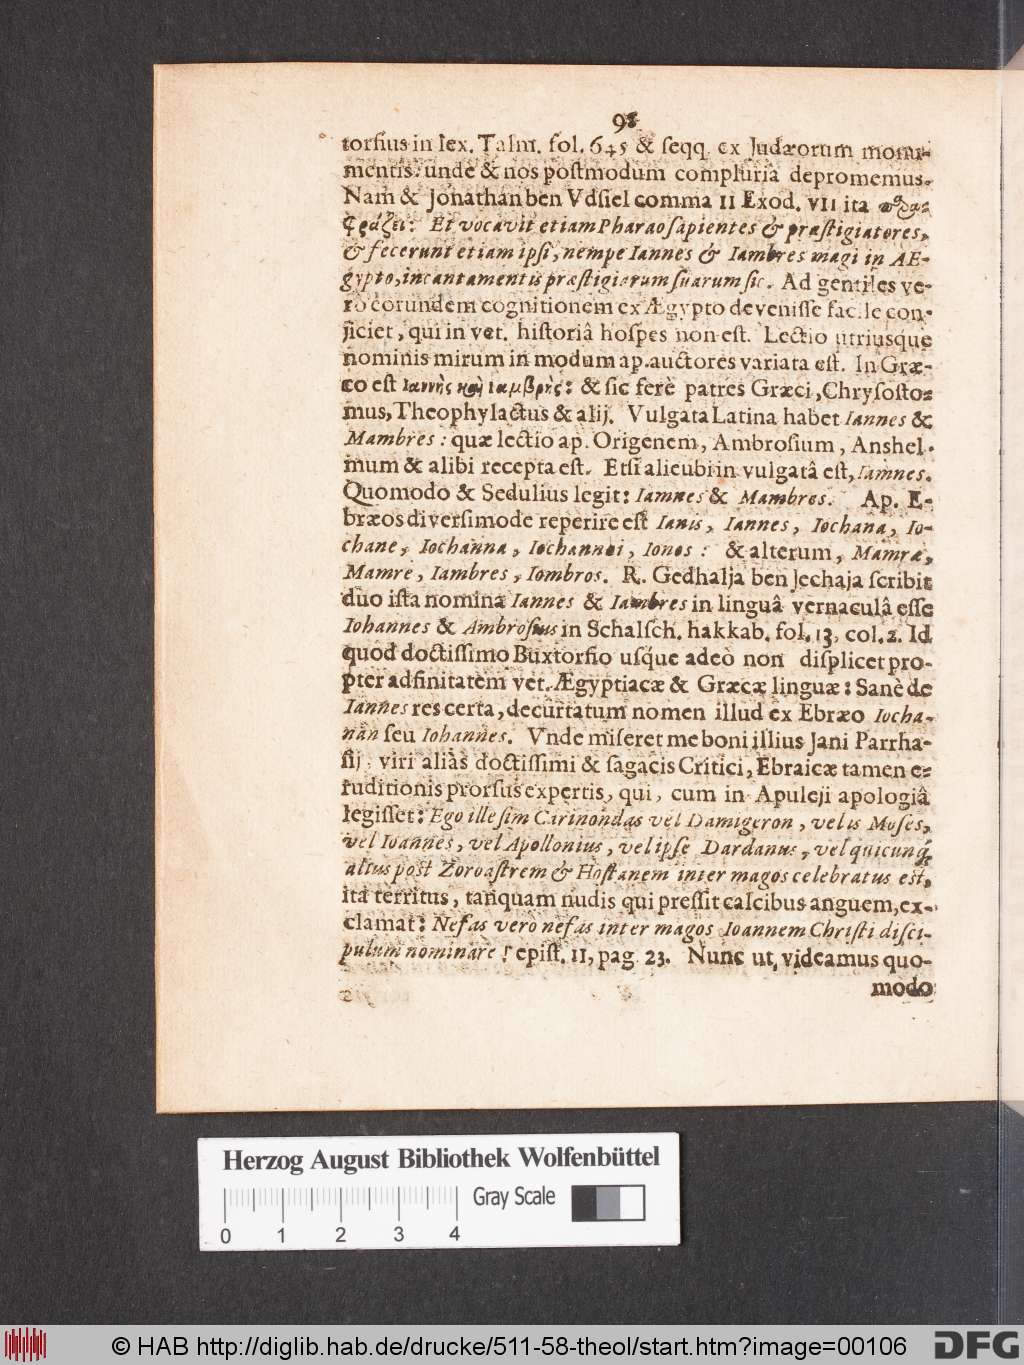 torſius in lex. Talm. fol. 645 & ſeqq. ex Judæorum monu-
mentis: unde & nos poſtmodum compluria depromemus.
Nam & Jonathan ben Vdſiel comma 11 Exod. VII ita παρα-
φράζει: Et vocavit etiam Pharao ſapientes & præſtigiatores,
& fecerunt etiam ipſi, nempe Iannes & Iambres magi in AE-
gypto, incantamentis præſtigiarum ſuarum ſic. Ad gentiles ve-
rò eorundem cognitionem ex Ægypto deveniſſe facile con-
jiciet, qui in vet. hiſtoriâ hoſpes non eſt. Lectio utriusque
nominis mirum in modum ap. auctores variata eſt. In Græ-
co eſt Ιαννὴς καὶ ιαμβρὴς: & ſic ferè patres Græci, Chryſoſto-
mus, Theophylactus & alij. Vulgata Latina habet Iannes &
Mambres: quæ lectio ap. Origenem, Ambroſium, Anshel-
mum & alibi recepta eſt. Etſi alicubi in vulgatâ eſt, Iamnes.
Quomodo & Sedulius legit: Iamnes & Mambres. Ap. E-
bræos diverſimode reperire eſt Ianis, Iannes, Iochana, Io-
chane, Iochanna, Iochannei, Ionos: & alterum, Mamra,
Mamre, Iambres, Iombros. R. Gedhalja ben Jechaja ſcribit
duo iſta nomina Iannes & Iambres in linguâ vernaculâ eſſe
Iohannes & Ambroſius in Schalſch. hakkab. fol. 13, col. 2. Id
quod doctiſſimo Buxtorfio uſq́ue adeò non diſplicet pro-
pter adfinitatem vet. Ægyptiacæ & Græcæ linguæ: Sanè de
Iannes res certa, decurtatum nomen illud ex Ebræo Iocha-
nan ſeu Iohannes. Vnde miſeret me boni illius Jani Parrha-
ſij, viri aliàs doctiſſimi & ſagacis Critici, Ebraicæ tamen e-
ruditionis prorſus expertis, qui, cum in Apuleji apologiâ
legiſſet: Ego ille ſim Carinondas vel Damigeron, vel is Moſes,
vel Ioannes, vel Apollonius, vel ipſe Dardanus, vel quicunq́;
altus poſt Zoroaſtrem & Hoſtanem inter magos celebratus eſt,
ita territus, tanquam nudis qui preſſit calcibus anguem, ex-
clamat: Nefas verò nefas inter magos Ioannem Chriſti diſci-
pulum nominare! epiſt. 11, pag. 23. Nunc ut, videamus quo-
modo
Herzog August Bibliothek Wolfenbüttel
Gray Scale
0 1 2 3 4
© HAB http://diglib.hab.de/drucke/511-58-theol/start.htm?image=00106
DFG